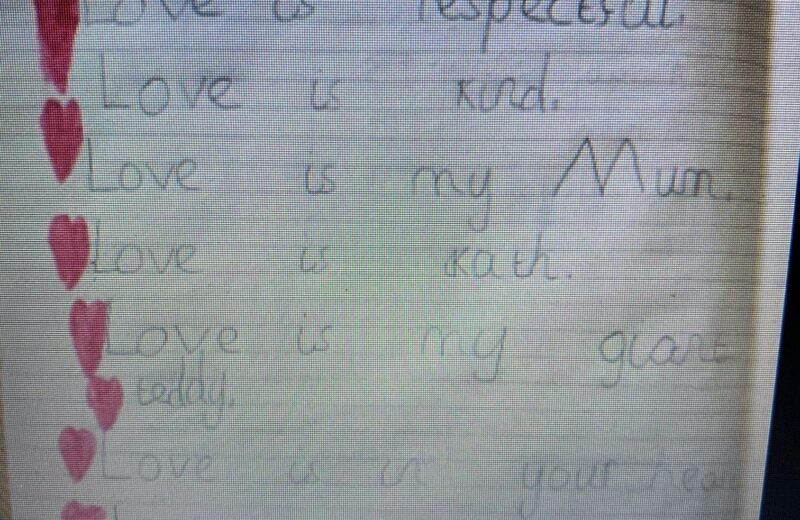 Love is respectful.
Love is kind.
Love is my Mum.
Love is Kath.
Love is my giant
teddy.
Love is in your